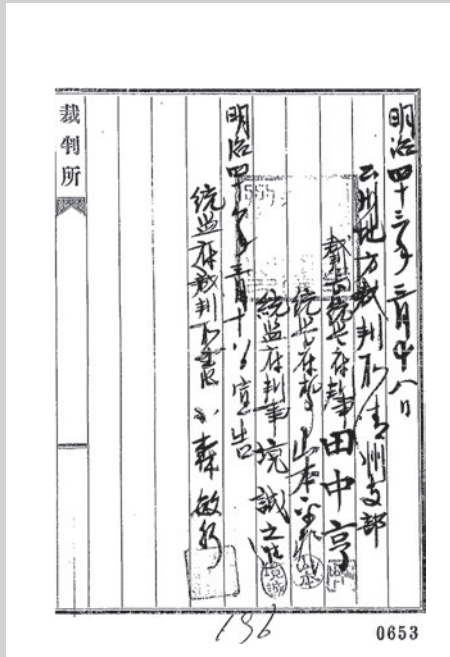 明治四十三年三月十八日
公州地方裁判所清州支部
裁判長統監府判事田中亨
統監府判事山本
統監府判事境誠之進
明治四十三年三月十八日宣告
統監府裁判所書記小森敏行
裁判所
136
0653